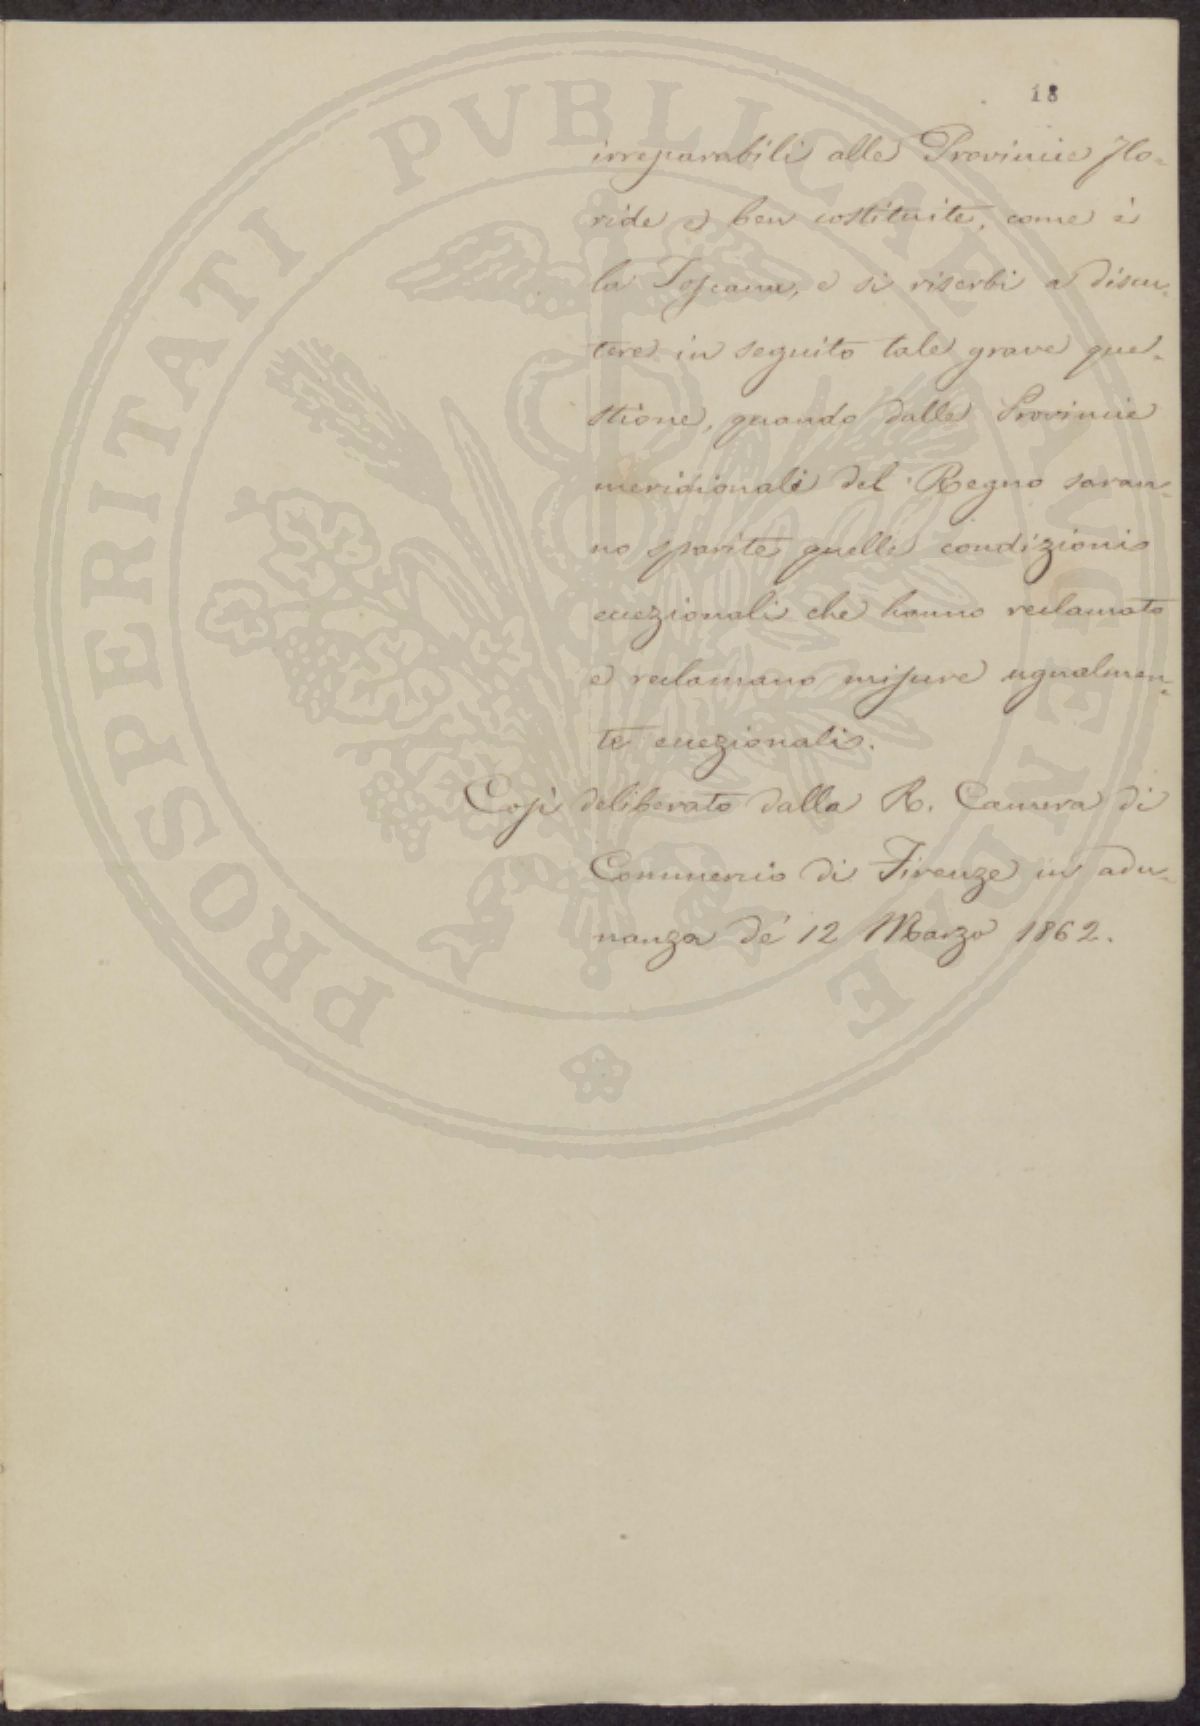 18
irreparabili alle Provincie flo-
ride e ben costituite, come è
la Toscana, e si riserbi a discu-
tere in seguito tale grave que-
stione, quando dalle Provincie
meridionali del Regno saran-
no sparite quelle condizioni
eccezionali che hanno reclamato
e reclamano misure ugualmen-
te eccezionali.
Così deliberato dalla R. Camera di
Commercio di Firenze in adu-
nanza de' 12 Marzo 1862.
PROSPERITATI PVBLICAE AVGENDAE